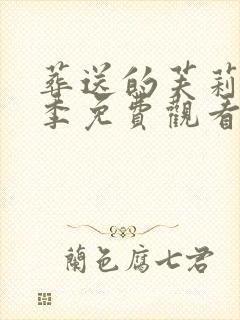 葬送的芙莉
季免費觀看
蘭色腐七君